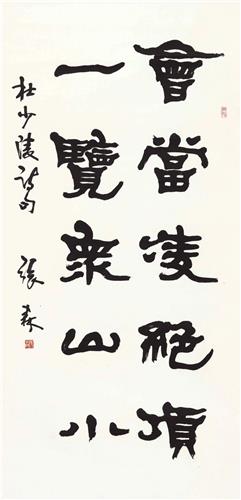 會當凌絕頂
一覽衆山小
杜少陵詩句
張森